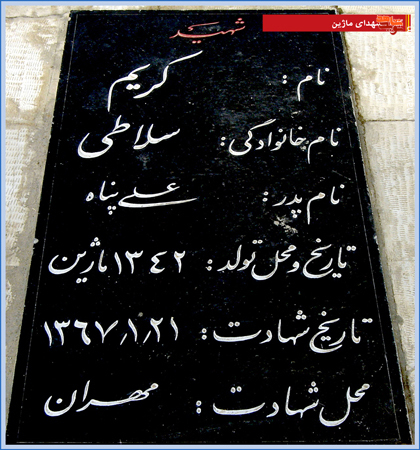 شهدای ماژین
شهید
نام : کریم
نام خانوادگی : سلاطی
نام پدر : علی پناه
تاریخ و محل تولد : ۱۳۴۲ ماژین
تاریخ شهادت : ۱۳۶۷/۱/۲۱
محل شهادت : مهران